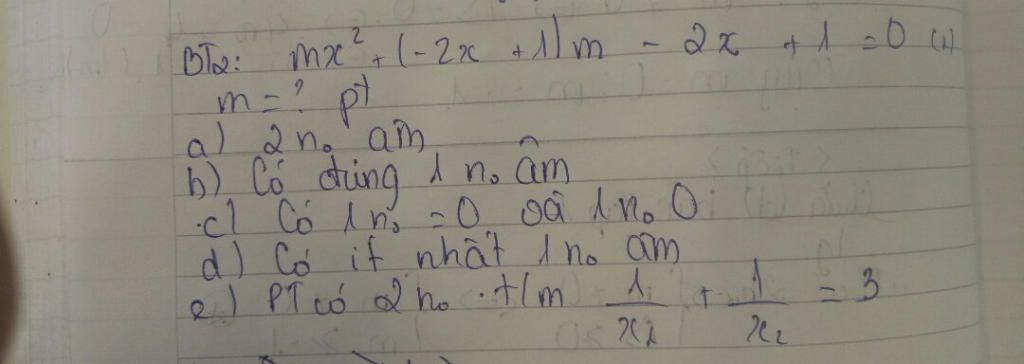 BT2: mx² + (-2x + 1)m - 2x + 1 = 0 (1)
m = ? pt
a) 2 n₀ âm
b) Có đúng 1 n₀ âm
c) Có 1 n₀ = 0 oà 1 n₀ 0
d) Có ít nhất 1 n₀ âm
e) PT có 2 n₀ . t/m 1/x₁ + 1/x₂ = 3